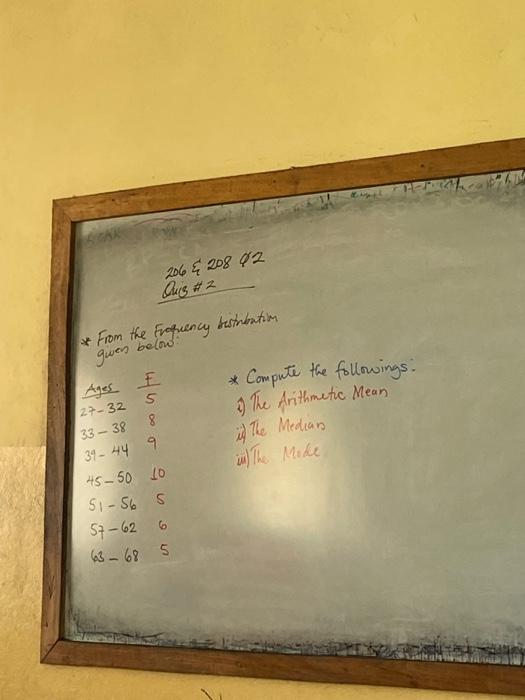 206 & 208 Q2
Quiz # 2
* From the Frequency Distribution
given below:
Ages F
27-32 5
33-38 8
39-44 9
45-50 10
51-56 5
57-62 6
63-68 5
* Compute the followings:
i) The Arithmetic Mean
ii) The Median
iii) The Mode